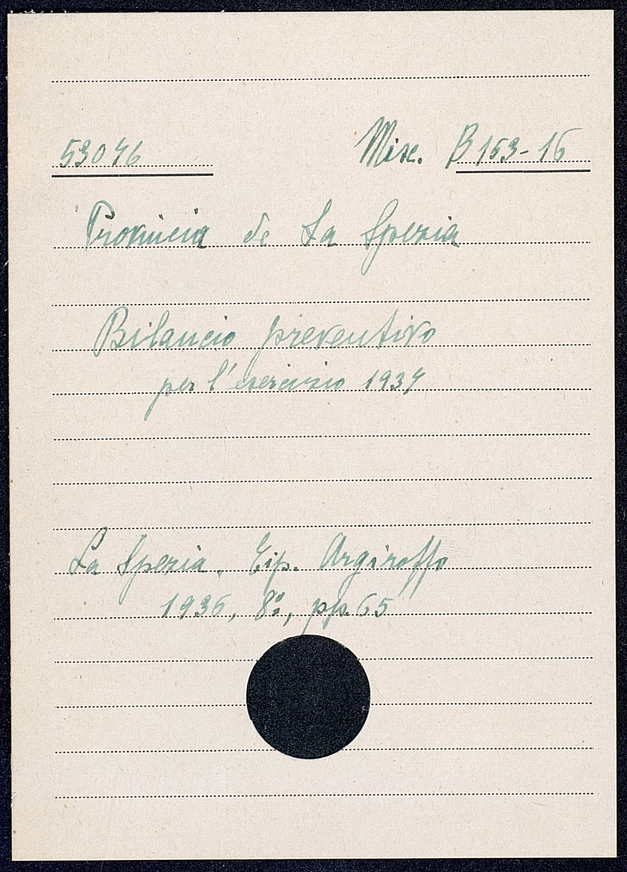 53046 Misc. B 153-16
Provincia de La Spezia
Bilancio preventivo
per l'esercizio 1937
La Spezia, Tip. Argiroffo
1936, 8º, pp. 65